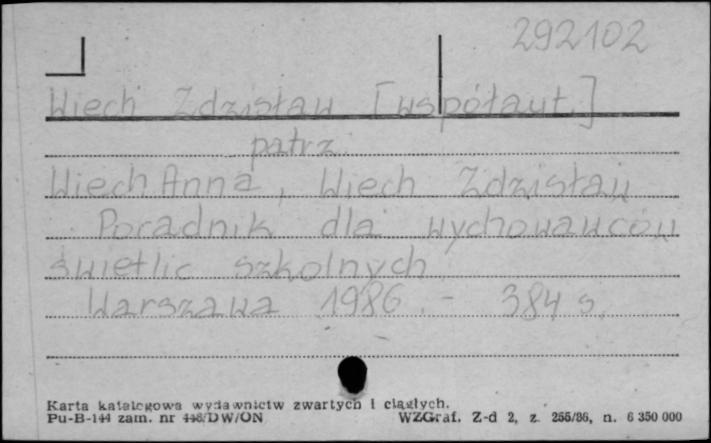 292102
Wiech Zdzisław [współaut.]
patrz
Wiech Anna, Wiech Zdzisław
Poradnik dla wychowawców
świetlic szkolnych
Warszawa 1986. - 384 s.
Karta katalogowa wydawnictw zwartych i ciągłych.
Pu-B-144 zam. nr 448/DW/ON WZGraf. Z-d 2, z. 255/86, n. 6 350 000